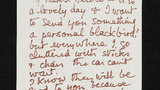 a lovely day & I want
to send you something
a personal blackbird!
but everywhere is so
cluttered with sticks
& than the car can't
wait.
I know they will be
to you because